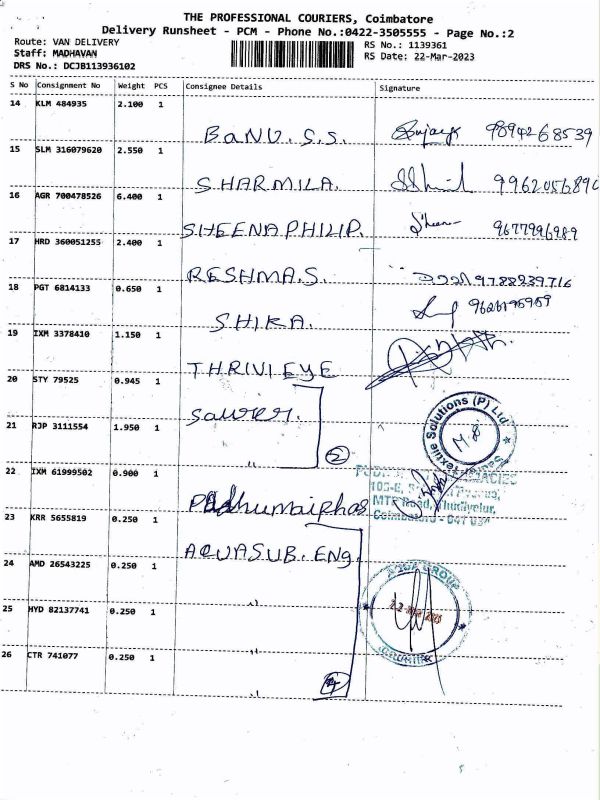 THE PROFESSIONAL COURIERS, Coimbatore
Delivery Runsheet - PCM - Phone No.:0422-3505555 - Page No.:2
Route: VAN DELIVERY
RS No.: 1139361
Staff: MADHAVAN
RS Date: 22-Mar-2023
DRS No.: DCJB113936102
S No Consignment No Weight PCS Consignee Details Signature
14 KLM 484935 2.100 1
BANU. S.S. 9894268539
15 SLM 316079620 2.550 1
SHARMILA.
16 AGR 700478526 6.400 1
SHEENA PHILIP. 9677996989
17 HRD 360051255 2.400 1
RESHMA.S. 9788239716
18 PGT 6814133 0.650 1
SHIKA.
19 IXM 3378410 1.150 1
THRIVI EYE
20 STY 79525 0.945 1
Textile Solutions (P) Ltd
21 RJP 3111554 1.950 1
" 2
22 IXM 61999502 0.900 1
MTP Road,
Coimbatore - 641
23 KRR 5655819 0.250 1
AQUASUB. ENg
24 AMD 26543225 0.250 1
" AQUA GROUP
25 HYD 82137741 0.250 1
"
26 CTR 741077 0.250 1
" 4